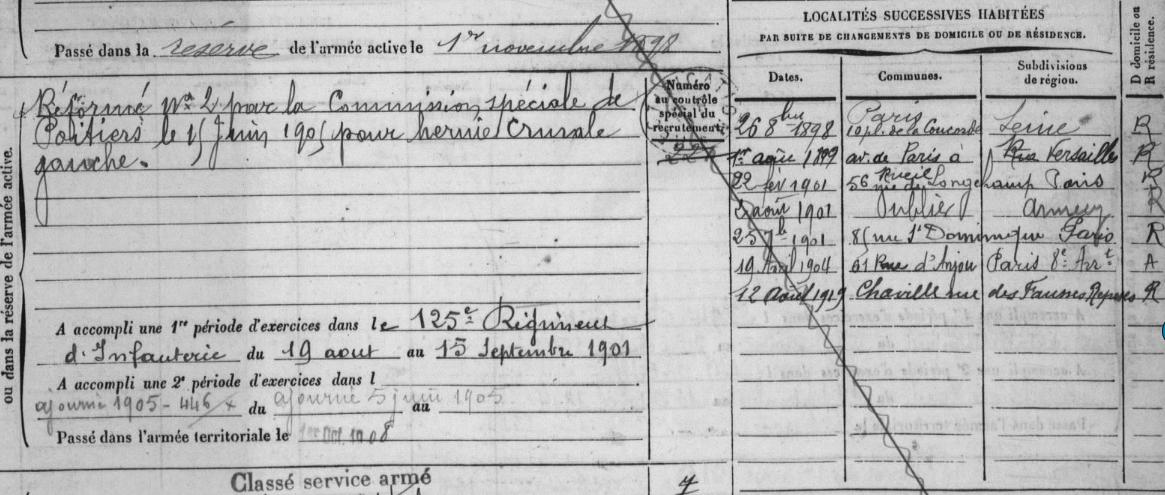 Passé dans la réserve de l'armée active le 1er novembre 1898
Réformé n° 2 par la Commission spéciale de
Poitiers le 15 Juin 1905 pour hernie crurale
gauche.
ou dans la réserve de l'armée active.
A accompli une 1re période d'exercices dans le 125e Régiment
d'Infanterie du 19 aout au 15 Septembre 1901
A accompli une 2e période d'exercices dans l
ajourné 1905 - 446 x du ajourné 5 juin 1905 au
Passé dans l'armée territoriale le 1er Oct. 1908
Classé service armé
Numéro
au contrôle
spécial du
recrutement.
LOCALITÉS SUCCESSIVES HABITÉES
PAR SUITE DE CHANGEMENTS DE DOMICILE OU DE RÉSIDENCE.
Dates. Communes. Subdivisions de région. D domicile ou R résidence.
26 8bre 1898 Paris 10 pl. de la Concorde Seine R
1er août 1899 av. de Paris à Rueil Versailles R
22 fév 1901 56 rue de Longchamp Paris R
août 1901 Publier Annecy R
25 7b 1901 85 rue St Dominique Paris R
19 Avril 1904 61 Rue d'Anjou Paris 8e Arrt A
12 Août 1919 Chaville rue des Fausses Reposes R